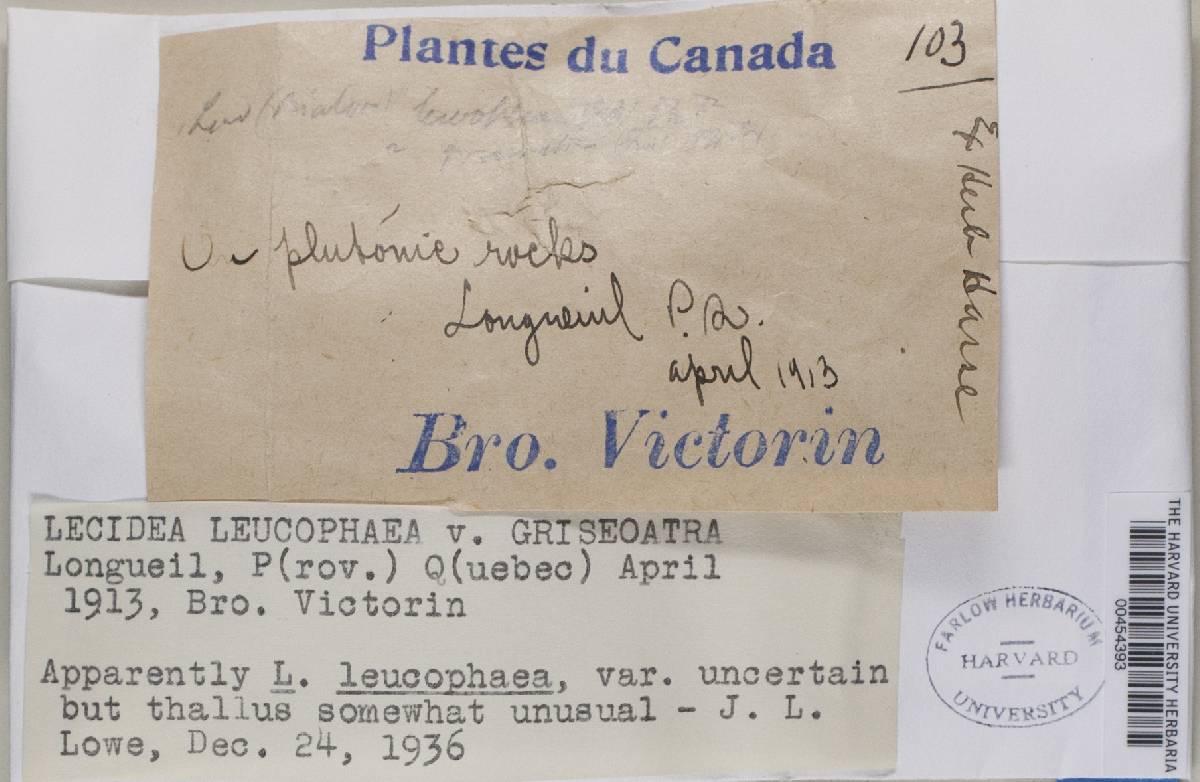 Plantes du Canada
103
Ex Herb Hasse
On plutonic rocks
Longueuil P.Q.
april 1913
Bro. Victorin
LECIDEA LEUCOPHAEA v. GRISEOATRA
Longueil, P(rov.) Q(uebec) April
1913, Bro. Victorin
Apparently L. leucophaea, var. uncertain
but thallus somewhat unusual - J. L.
Lowe, Dec. 24, 1936
FARLOW HERBARIUM
HARVARD
UNIVERSITY
THE HARVARD UNIVERSITY HERBARIA
00454393